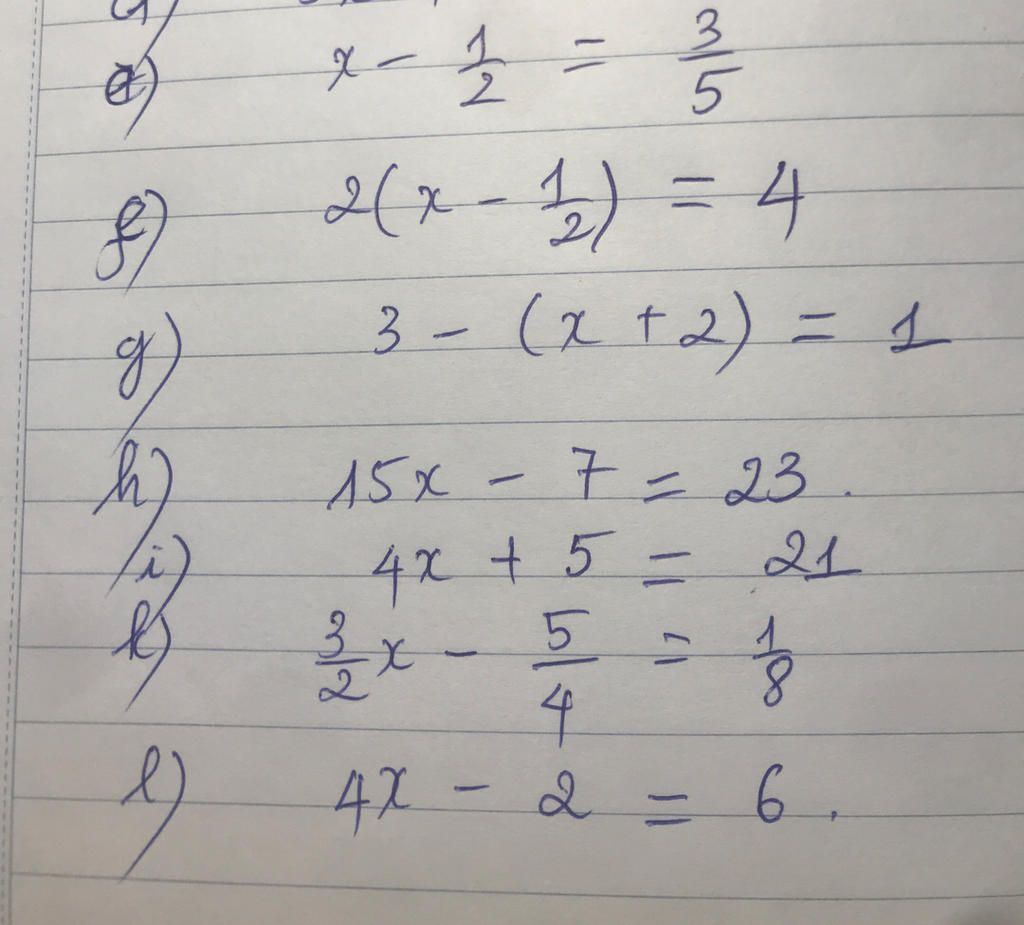 e) x - 1/2 = 3/5
f) 2(x - 1/2) = 4
g) 3 - (x + 2) = 1
h) 15x - 7 = 23.
i) 4x + 5 = 21
k) 3/2 x - 5/4 = 1/8
l) 4x - 2 = 6.